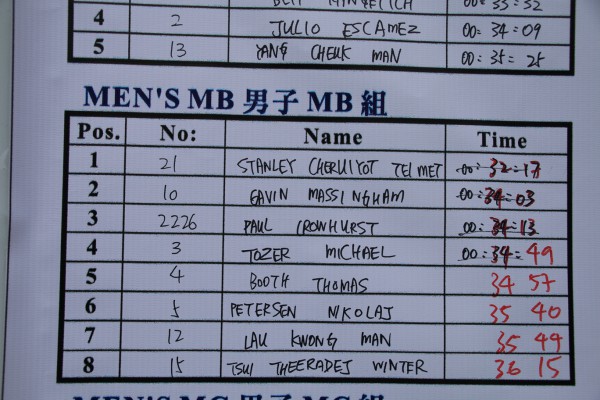 00:33:32
4 2 JULIO ESCAMEZ 00:34:09
5 13 YANG CHEUK MAN 00:35:25
MEN'S MB 男子 MB 組
Pos. No: Name Time
1 21 STANLEY CHERUIYOT TEIMET 00:32:17
2 10 GAVIN MASSINGHAM 00:34:03
3 2226 PAUL CROWHURST 00:34:13
4 3 TOZER MICHAEL 00:34:49
5 4 BOOTH THOMAS 34 57
6 5 PETERSEN NIKOLAJ 35 40
7 12 LAU KWONG MAN 35 49
8 15 TSUI THEERADEJ WINTER 36 15
MEN'S MC 男子 MC 組